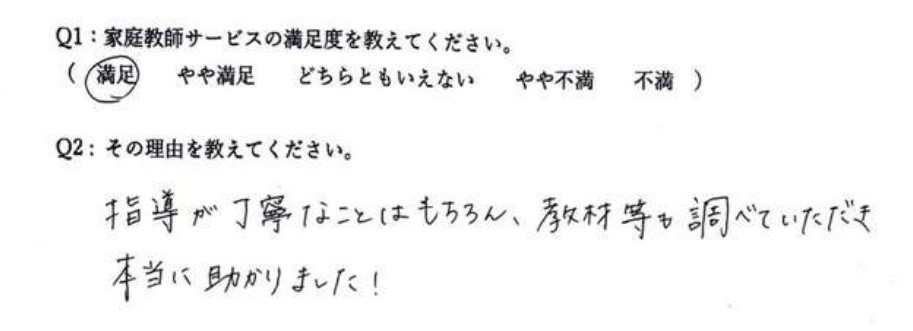 Q1：家庭教師サービスの満足度を教えてください。
（ 満足　やや満足　どちらともいえない　やや不満　不満 ）
Q2：その理由を教えてください。
指導が丁寧なことはもちろん、教材等も調べていただき
本当に助かりました！